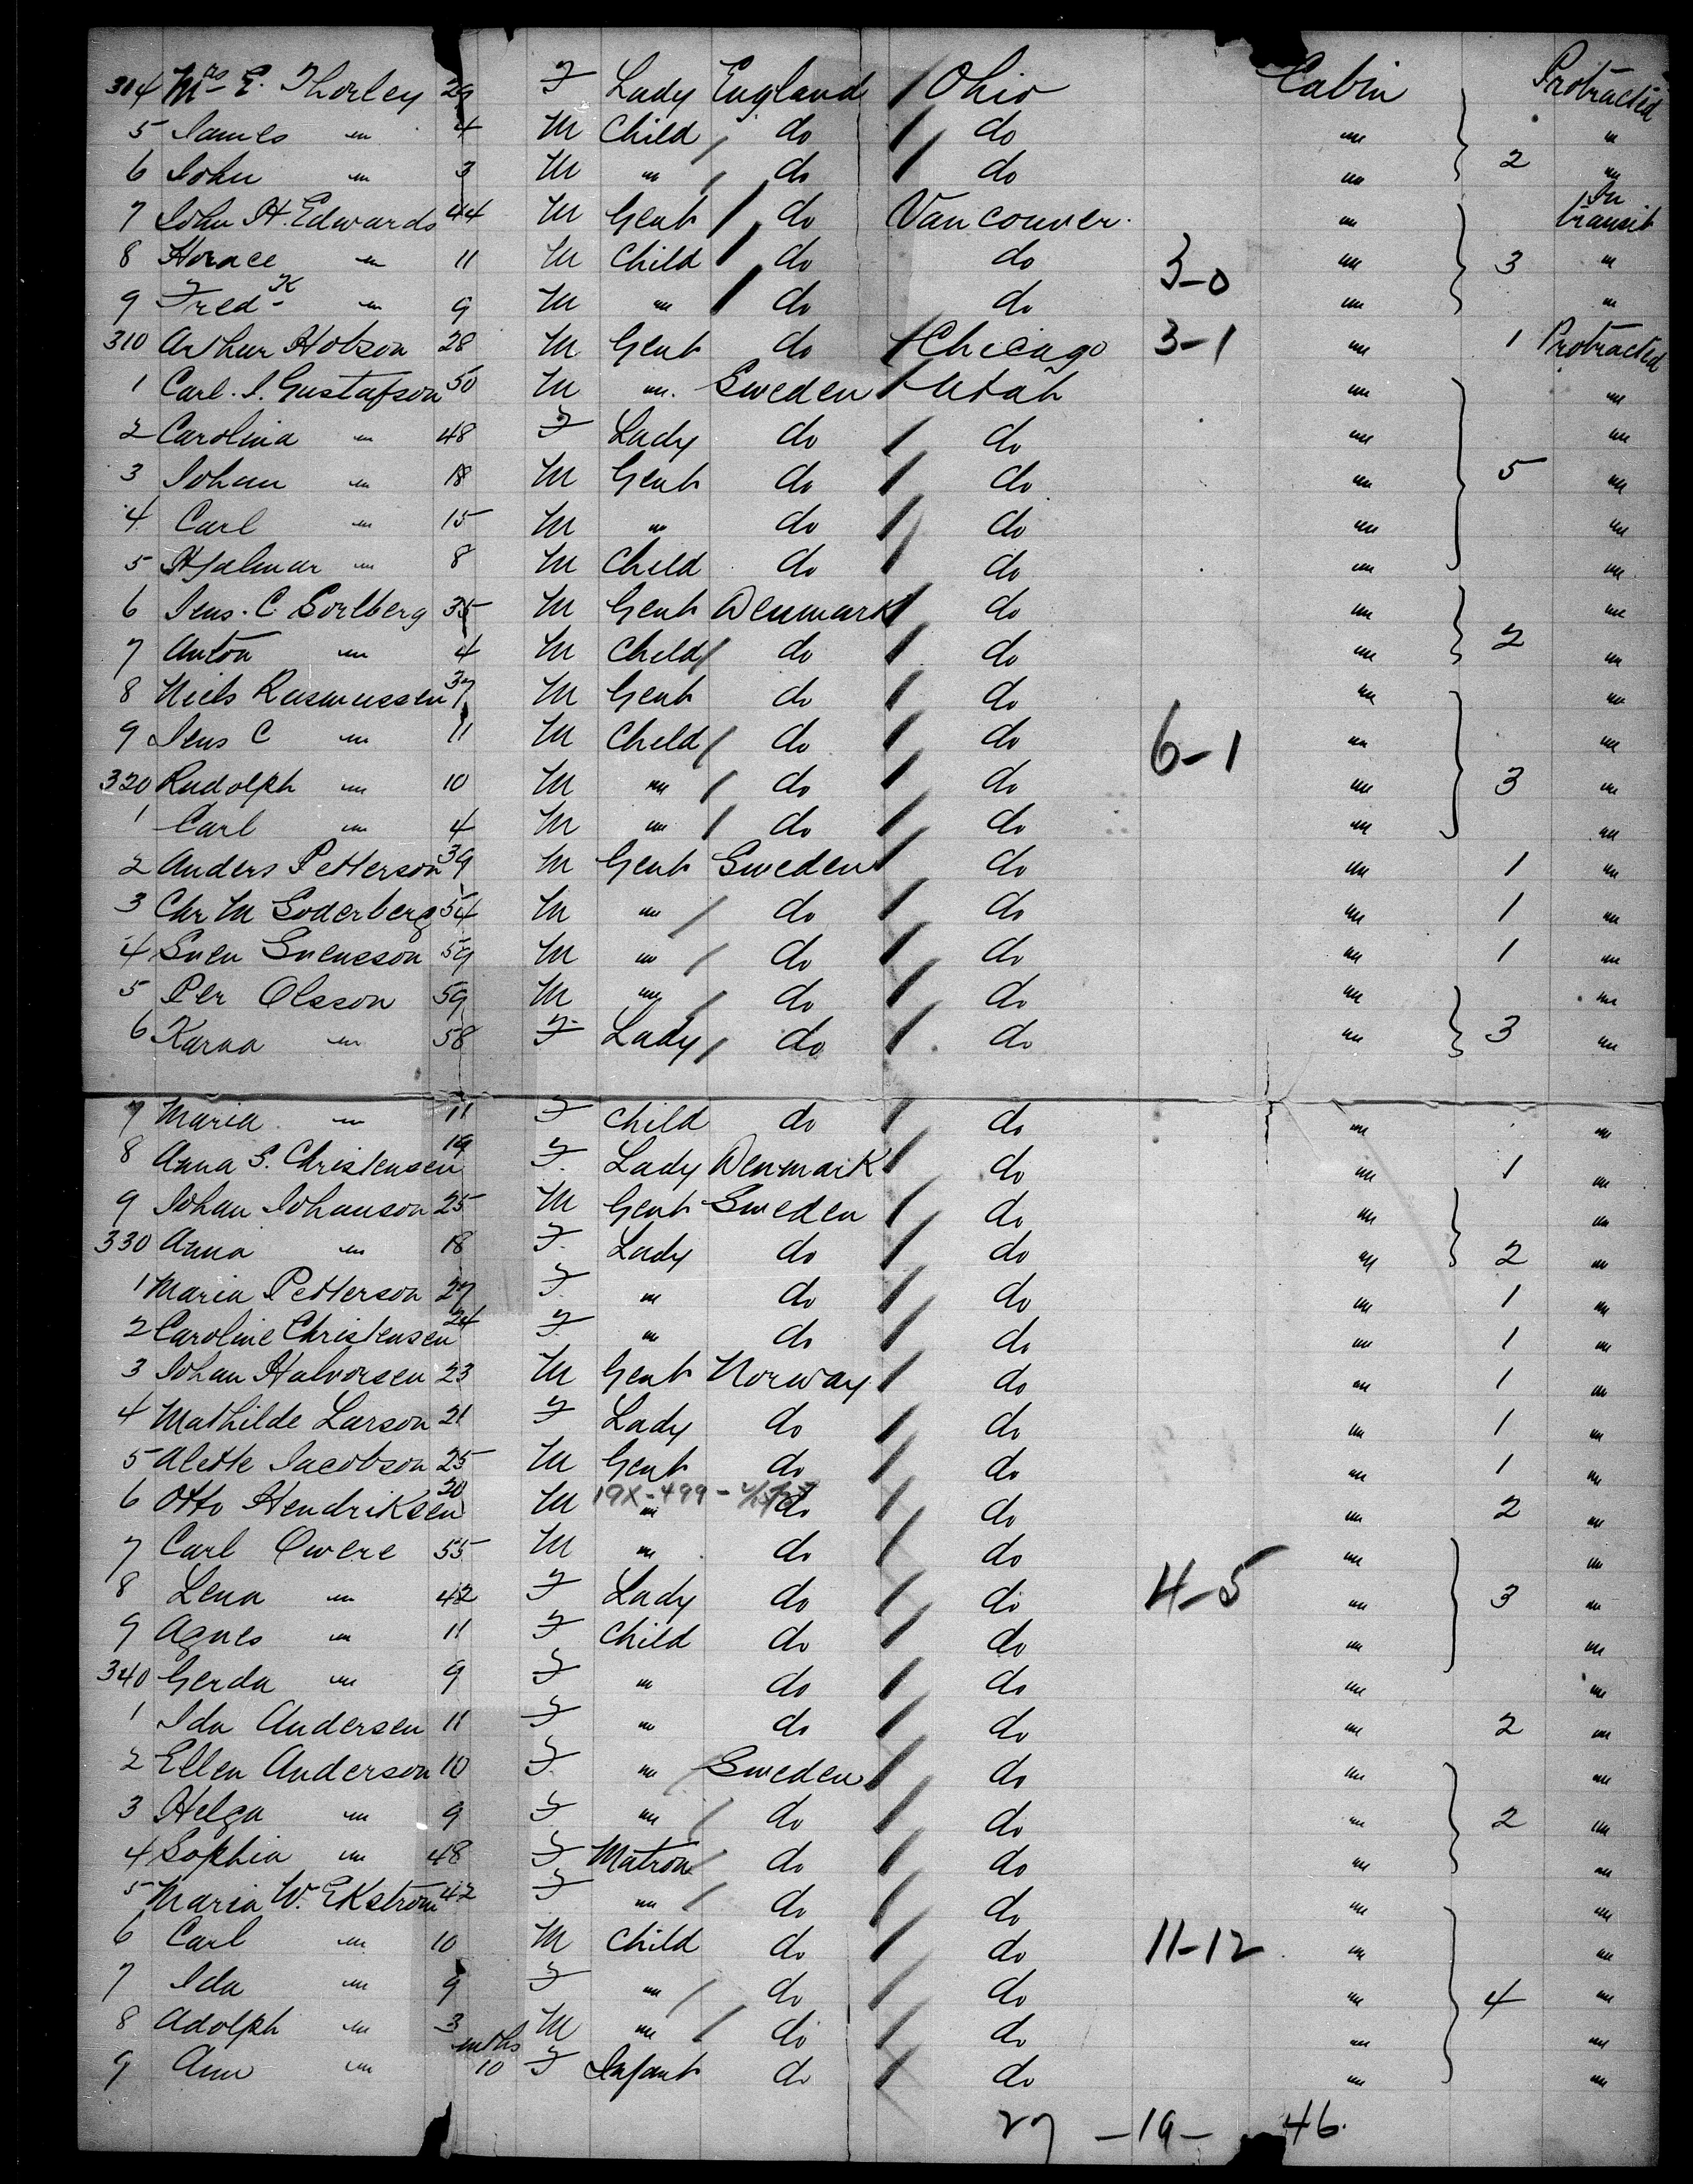 314 Mrs E. Thorley 29 F Lady England / Ohio Cabin Protracted
5 James " 4 M Child / do / do " "
6 John " 3 M " / do / do " 2 "
7 John H. Edwards 44 M Gent / do Vancouver. " In transit
8 Horace " 11 M Child / do do 3-0 " 3 "
9 Fredk " 9 M " / do do " "
310 Arthur Hobson 28 M Gent do / Chicago 3-1 " 1 Protracted
1 Carl. I. Gustafson 50 M " Sweden / Utah " "
2 Carolina " 48 F Lady do / do " "
3 Johan " 18 M Gent do / do " 5 "
4 Carl " 15 M " do / do " "
5 Hjalmar " 8 M Child do / do " "
6 Jens. C. Sorlberg 35 M Gent Denmark / do " "
7 Anton " 4 M Child / do / do " 2 "
8 Niels Rasmussen 37 M Gent do / do " "
9 Jens C " 11 M Child / do / do 6-1 " "
320 Rudolph " 10 M " / do / do " 3 "
1 Carl " 4 M " / do / do " "
2 Anders Petterson 39 M Gent Sweden / do " 1 "
3 Chr M Soderberg 54 M " / do / do " 1 "
4 Sven Svensson 59 M " / do / do " 1 "
5 Per Olsson 59 M " / do / do " "
6 Karna " 58 F Lady / do / do " 3 "
7 Maria " 11 F Child do / do " "
8 Anna S. Christensen 19 F. Lady Denmark / do " 1 "
9 Johan Johanson 25 M Gent Sweden / do " "
330 Anna " 18 F. Lady do / do " 2 "
1 Maria Petterson 27 F " do / do " 1 "
2 Caroline Christensen 24 F " do / do " 1 "
3 Johan Halvorsen 23 M Gent Norway / do " 1 "
4 Mathilde Larson 21 F Lady do / do " 1 "
5 Alette Jacobson 25 M Gent do / do " 1 "
6 Otto Hendriksen 20 M 19X-499 - " do / do " 2 "
7 Carl Owere 55 M " do / do " "
8 Lena " 42 F Lady do / do 4-5 " 3 "
9 Agnes " 11 F Child do / do " "
340 Gerda " 9 F " do / do " "
1 Ida Andersen 11 F " do / do " 2 "
2 Ellen Anderson 10 F " / Sweden / do " "
3 Helga " 9 F " / do / do " 2 "
4 Sophia " 48 F Matron / do / do " "
5 Maria W. Ekstrom 42 F " / do / do " "
6 Carl " 10 M Child do / do 11-12 " "
7 Ida " 9 F " / do / do " 4 "
8 Adolph " 3 M " / do / do " "
9 Ann " mths 10 F Infant do / do " "
27 - 19 - 46.